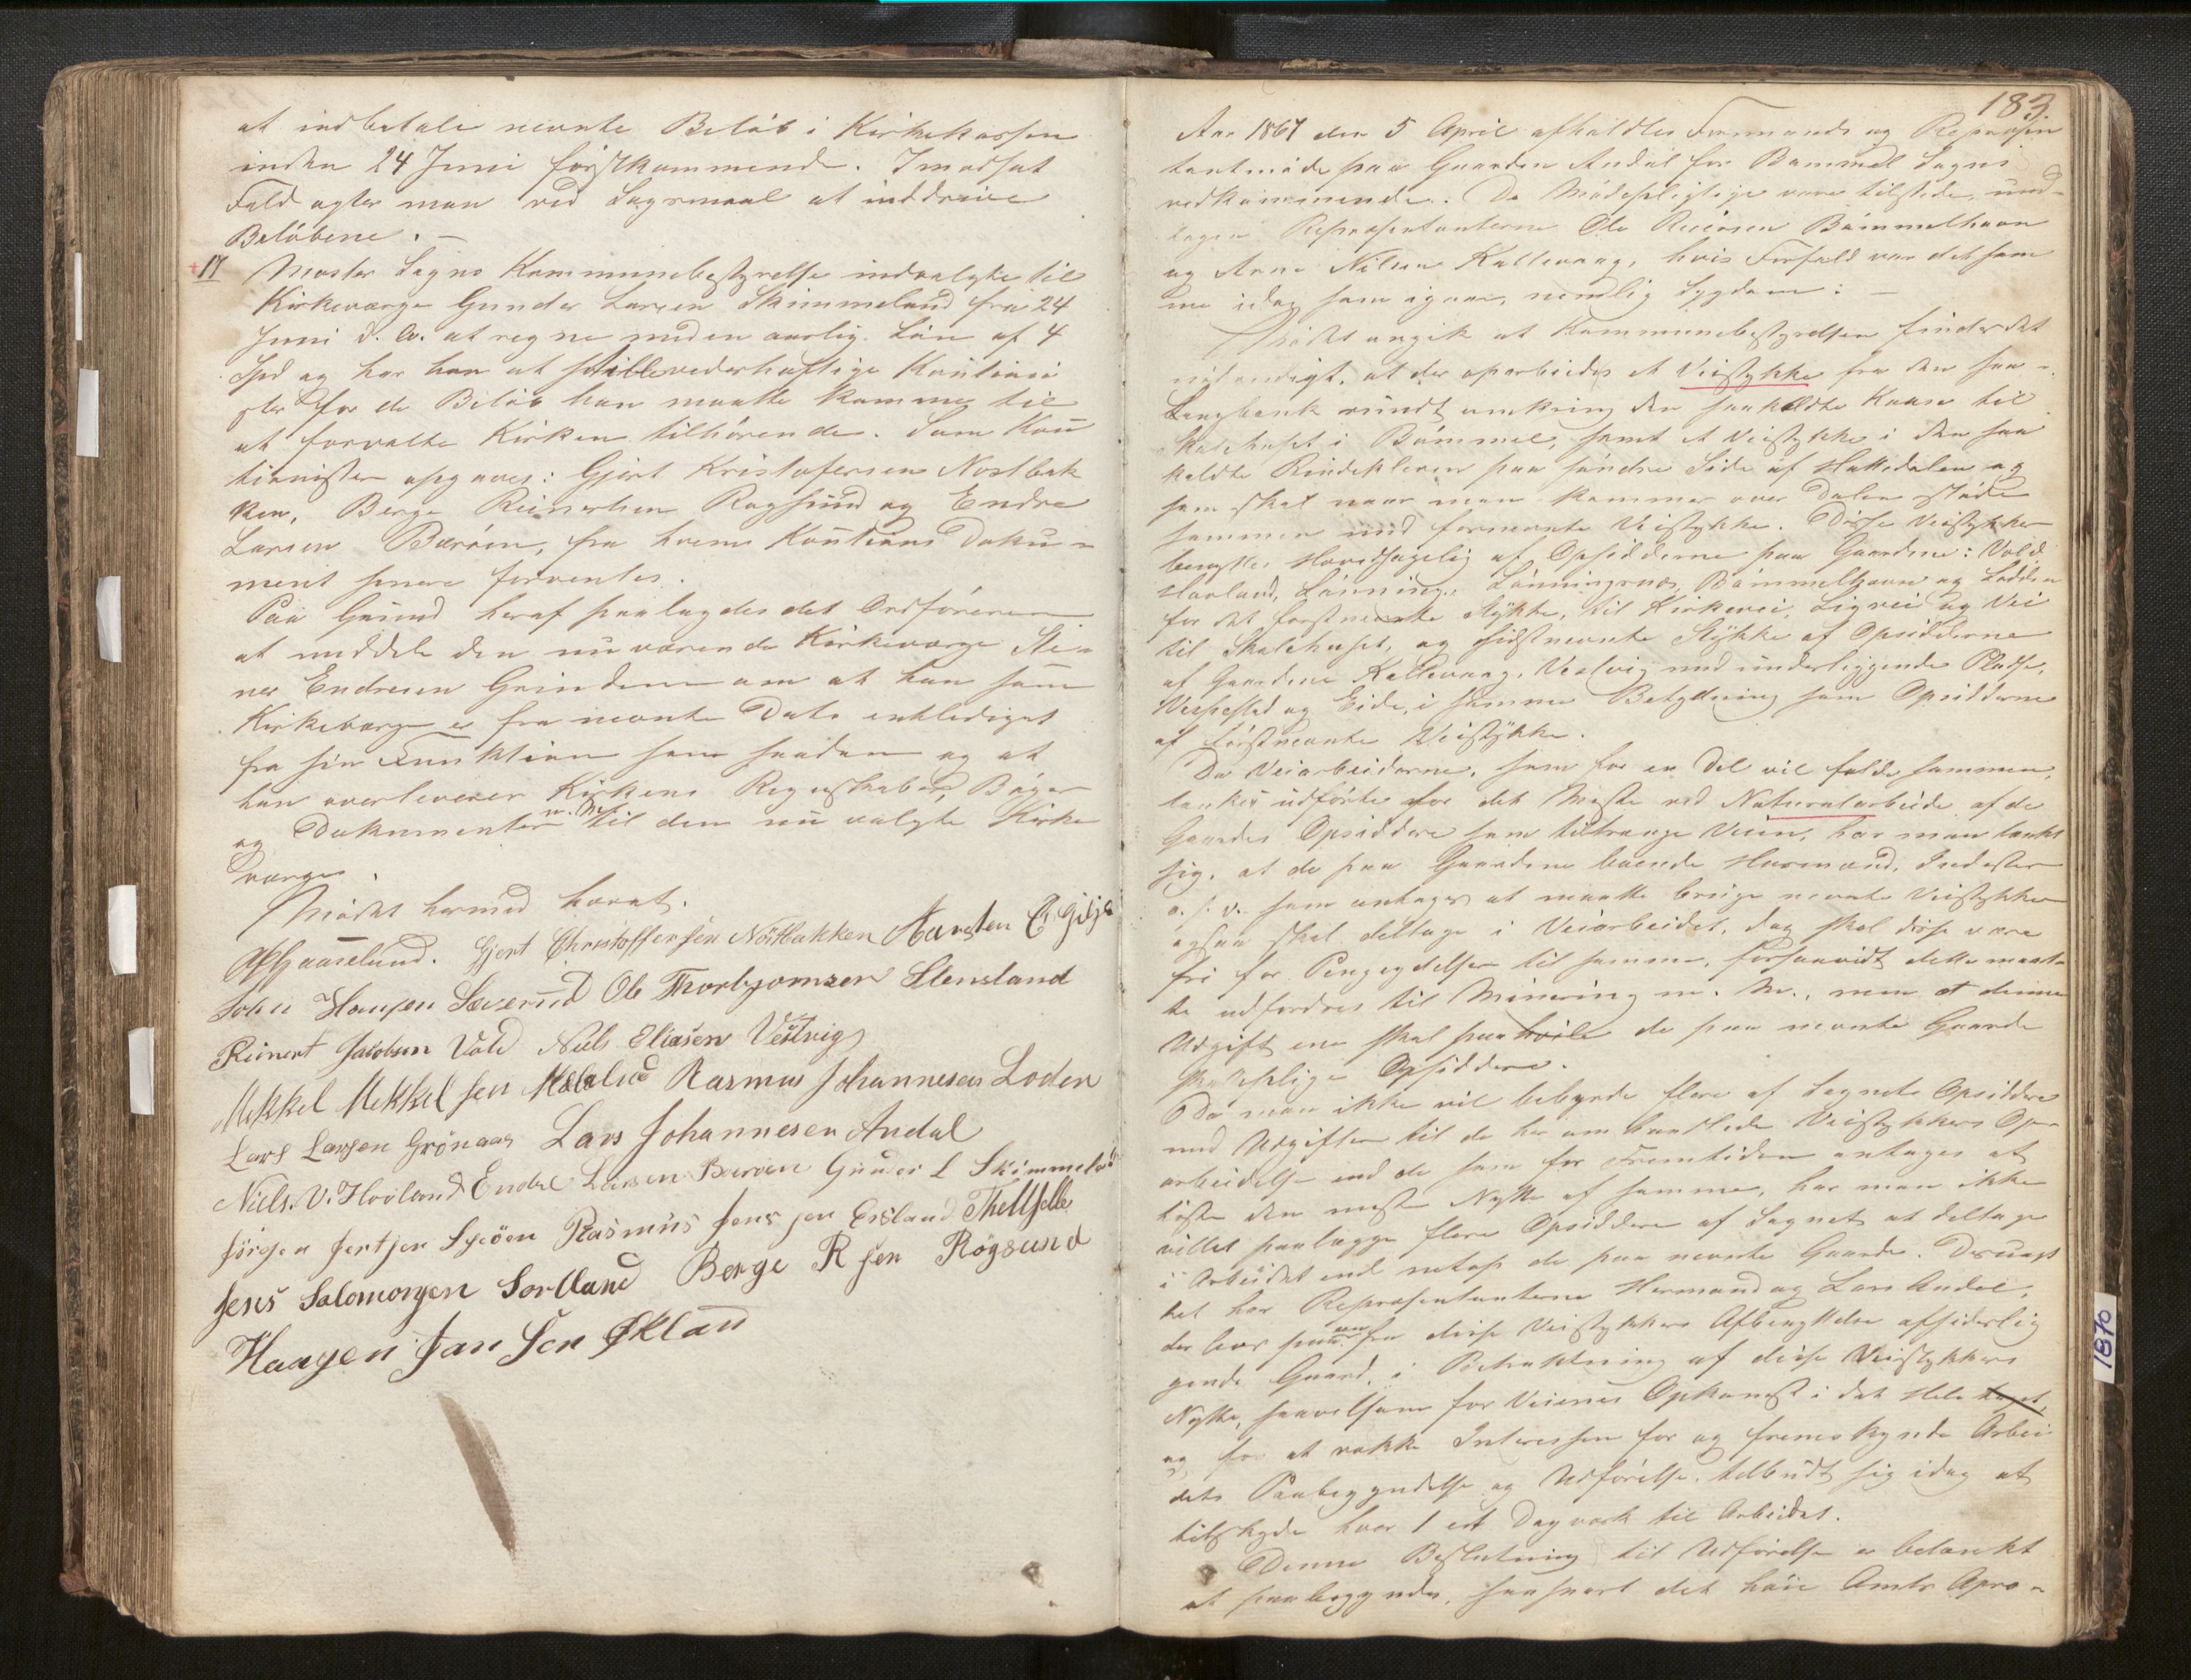 at indbetale nevnte Beløb i Kirkekassen
inden 24 Juni førstkommende. I modsat
Fald agter man ved Søgsmaal at inddrive
Beløbene. –
+17 Moster Sogns Kommunebestyrelse indvalgte til
Kirkeværge Gunder Larsen Skimmeland fra 24
Juni d. A. at regne mod en aarlig Løn af 4
Spd og har han at stille vederhæftige Kautioni
ster for de Beløb han maatte komme til
at forvalte Kirken tilhørende. Som Kau
tionister opgaves: Gjert Kristofersen Nostbak
ken, Berge Reinertsen Rogsund og Endre
Larsen Berøen, fra hvem Kautions Doku-
ment senere forventes.
Paa Grund heraf paalagdes det Ordføreren
at meddele den nu værende Kirkeværge Stei-
ner Endresen Grinden om at han som
Kirkeværge er fra nevnte Dato entlediget
fra sin Funktion som saadan og at
han overleverer Kirkens Regnskaber, Bøger
og Dokumenter m. M. til den nu valgte Kirke
værge.
Mødet hermed hævet.
Gjert Christoffersen Nöstbakken Karsten E. Gilje
John Hansen Sæverud Ole Thorbjornsen Stensland
Reinert Jakobsen Vold Niels Eliasen Vestvig
Mekkel Mekkelsen Rasmus Johannesen Loden
Lars Larsen Grönaas Lars Johannesen Andal
Niels. V. Hovland Endre Larsen Beröen Gunder L Skimmeland
Rasmus Jensen Eisland
Jens Salomonsen Sortland Berge R sen Rögsund
Haagen Jansen Økland
183.
Aar 1867 den 5 April afholdtes Formands og Repræsen
tantmøde paa Gaarden Andal for Bømmel Sogns
vedkommende. De Mødepligtige vare tilstede und-
tagen Repræsentanterne Ole Reiersen Bømmelhavn
og Arne Nilsen Kallevaag, hvis Forfald var det sam
me idag som igaar, nemlig Sygdom: –
Mødet angik at Kommunebestyrelsen finder det
nødvendigt, at der oparbeides et Veistykke fra den saa-
Langbank rundt omkring den saakaldte Kaase til
Skolehuset i Bømmel, samt et Veistykke i den saa
kaldte Rindekleven paa søndre Side af Hattedalen og
som skal naar man kommer over Dalen støde
sammen med fornevnte Veistykke. Disse Veistykker
benyttes Hovedsagelig af Opsidderne paa Gaardene: Vold
Hovland, Lønning, Lønningsnes, Bømmelhavn og Lodden
for det førstnevnte Stykke, til Kirkevei, Ligvei og Vei
til Skolehuset, og sidstnevnte Stykke af Opsidderne
af Gaardene Kallevaag, Vestvig med underliggende Pladse,
Vespestad og Eide, i samme Betydning som Opsidderne
af førstnevnte Veistykke.
Da Veiarbeiderne, som for en Del vil falde sammen,
tænkes udførte for det Meste ved Naturalarbeide af de
Gaardes Opsiddere som tiltrænge Veien, har man tænkt
sig, at de paa Gaardene boende Husmænd, Inderster
o. s. v. som antages at maatte bruge nevnte Veistykker
ogsaa skal deltage i Veiarbeidet, dog skal disse være
fri for Pengeydelser til samme, forsaavidt dette maat-
te udfordres til Minering m. M., men at denne
Udgift ene skal paahvile de paa nevnte Gaarde
skatskyldige Opsiddere.
Da man ikke vil bebyrde flere af Sognets Opsiddere
med Udgifter til de her omhandlede Veistykkers Op-
arbeidelse end de som for Fremtiden antages at
høste den meste Nytte af samme, har man ikke
villet paalægge flere Opsiddere af Sognet at deltage
i Arbeidet end netop de paa nevnte Gaarde. Desuagt
tet har Repræsentanterne Hermand og Lars Andal,
der bor paa en fra disse Veistykkers Afbenyttelse afsideslig
gende Gaard, i Betraktning af disse Veistykkers
Nytte, saavelsom for Veienes Opkomst i det Hele taget,
og for at vække Interessen for og fremskynde Arbei
dets Paabegyndelse og Udførelse, tilbudt sig idag at
tilskyde hver 1 et Dagværk til Arbeidet.
Denne Beslutning til Udførelse er betænkt
at paabegyndes, saasnart det høie Amts Apro-
1870